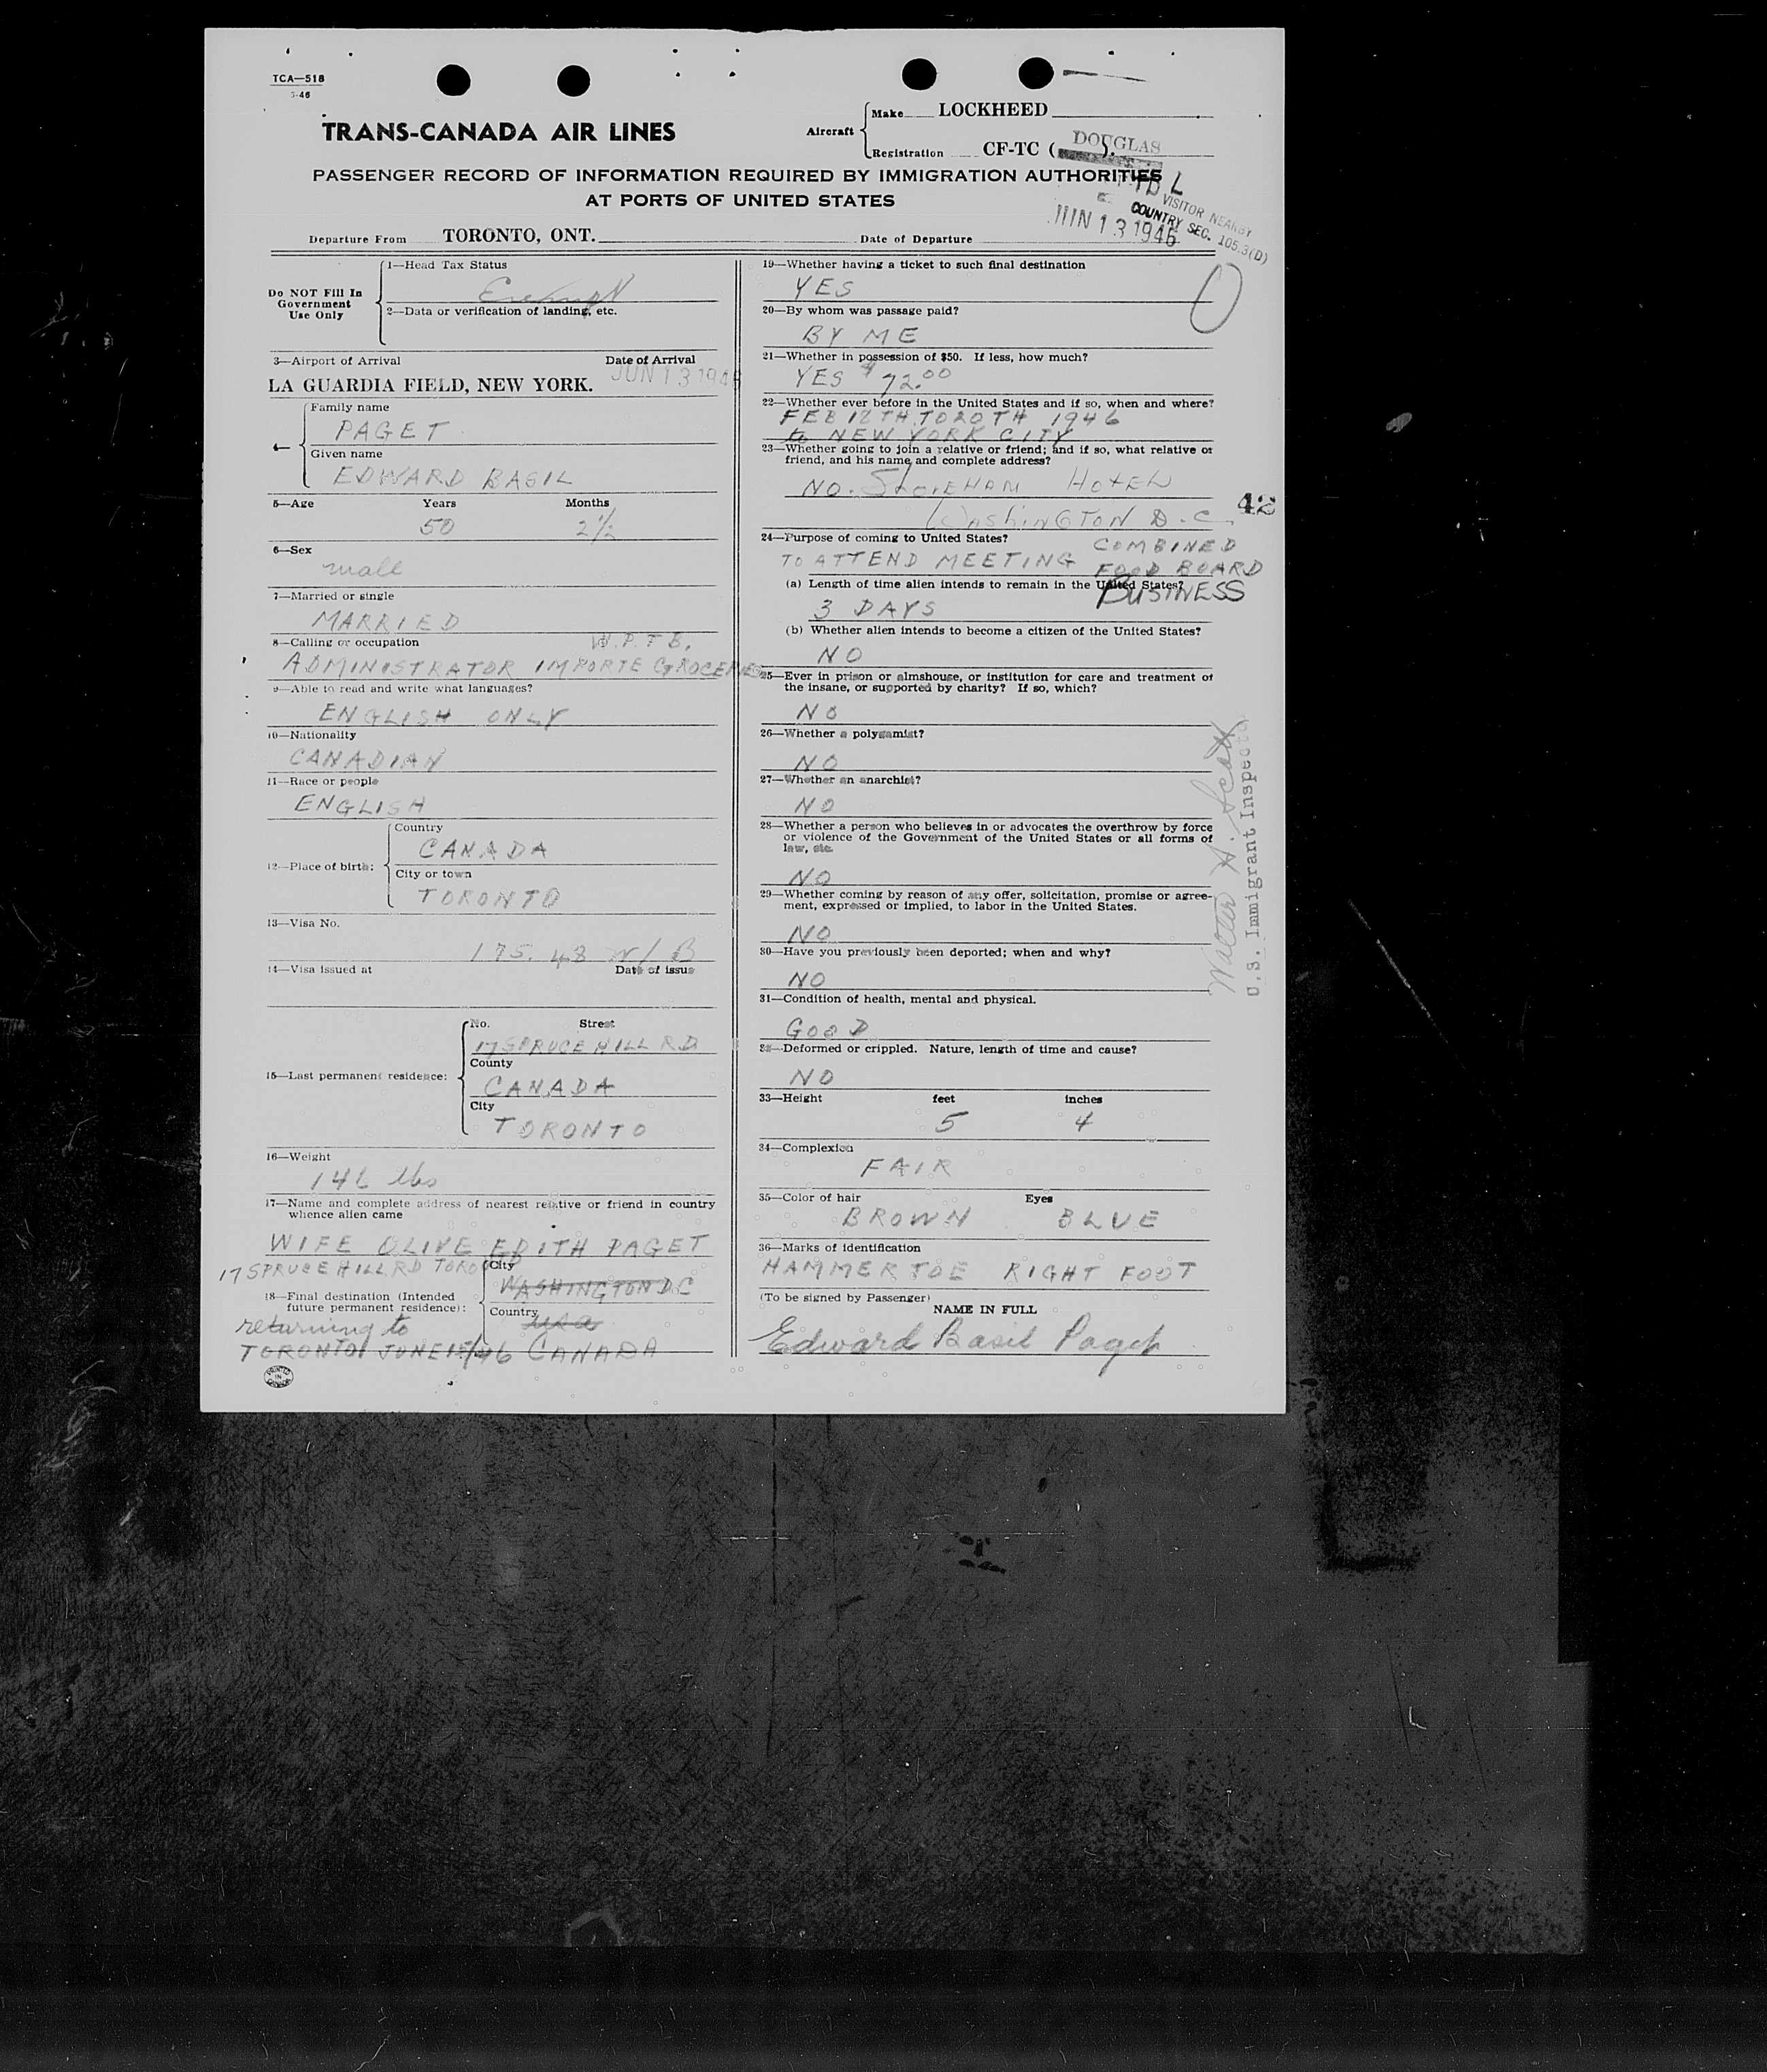 TCA—518
TRANS-CANADA AIR LINES
Aircraft
Make LOCKHEED
Registration CF-TC ( ).
DOUGLAS
PASSENGER RECORD OF INFORMATION REQUIRED BY IMMIGRATION AUTHORITIES
AT PORTS OF UNITED STATES
VISITOR NEARBY
COUNTRY SEC. 105.3(D)
JUN 13 1946
Departure From TORONTO, ONT. Date of Departure
Do NOT Fill In
Government
Use Only
1—Head Tax Status
Exempt
2—Data or verification of landing, etc.
3—Airport of Arrival Date of Arrival
LA GUARDIA FIELD, NEW YORK. JUN 13 1946
Family name
PAGET
Given name
EDWARD BASIL
5—Age Years Months
50 2½
6—Sex
male
7—Married or single
MARRIED
8—Calling or occupation W.P.T.B.
ADMINISTRATOR IMPORTE GROCERIES
9—Able to read and write what languages?
ENGLISH ONLY
10—Nationality
CANADIAN
11—Race or people
ENGLISH
12—Place of birth:
Country
CANADA
City or town
TORONTO
13—Visa No.
175.43 W/B
14—Visa issued at Date of issue
15—Last permanent residence:
No. Street
17 SPRUCE HILL RD
County
CANADA
City
TORONTO
16—Weight
146 lbs
17—Name and complete address of nearest relative or friend in country
whence alien came
WIFE OLIVE EDITH PAGET
17 SPRUCE HILL RD TORO
18—Final destination (Intended
future permanent residence):
City
WASHINGTON D.C
Country
usa
returning to
TORONTO JUNE 15/46 CANADA
PRINTED
IN
CANADA
19—Whether having a ticket to such final destination
YES
20—By whom was passage paid?
BY ME
21—Whether in possession of $50. If less, how much?
YES $72.00
22—Whether ever before in the United States and if so, when and where?
FEB 18TH TO 20TH 1946
to NEW YORK CITY
23—Whether going to join a relative or friend; and if so, what relative or
friend, and his name and complete address?
NO. SHOREHAM HOTEL
WASHINGTON D.C.
42
24—Purpose of coming to United States? COMBINED
TO ATTEND MEETING FOOD BOARD
(a) Length of time alien intends to remain in the United States?
BUSINESS
3 DAYS
(b) Whether alien intends to become a citizen of the United States?
NO
25—Ever in prison or almshouse, or institution for care and treatment of
the insane, or supported by charity? If so, which?
NO
26—Whether a polygamist?
NO
27—Whether an anarchist?
NO
28—Whether a person who believes in or advocates the overthrow by force
or violence of the Government of the United States or all forms of
law, etc.
NO
29—Whether coming by reason of any offer, solicitation, promise or agree-
ment, expressed or implied, to labor in the United States.
NO
30—Have you previously been deported; when and why?
NO
31—Condition of health, mental and physical.
GOOD
32—Deformed or crippled. Nature, length of time and cause?
NO
33—Height feet inches
5 4
34—Complexion
FAIR
35—Color of hair Eyes
BROWN BLUE
36—Marks of identification
HAMMER TOE RIGHT FOOT
(To be signed by Passenger)
NAME IN FULL
Edward Basil Paget
Walter A. Scott
U.S. Immigrant Inspector